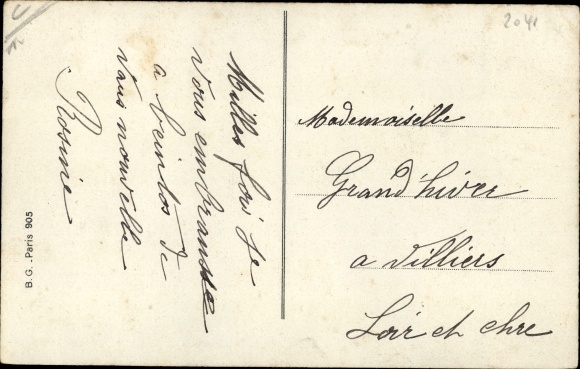 Milles fois je
vous embrasse
a beintos de
vous nouvelle
Rosine
Mademoiselle
Grand'hiver
a Villiers
Loir et chre
B.G.-Paris 905
2041